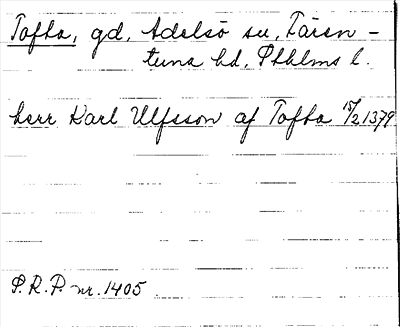 Tofta, gd, Adelsö sn, Fären-
tuna hd, Sthlms l.
herr Karl Ulfsson af Tofta 15/2 1379
P.R.P. nr. 1405.